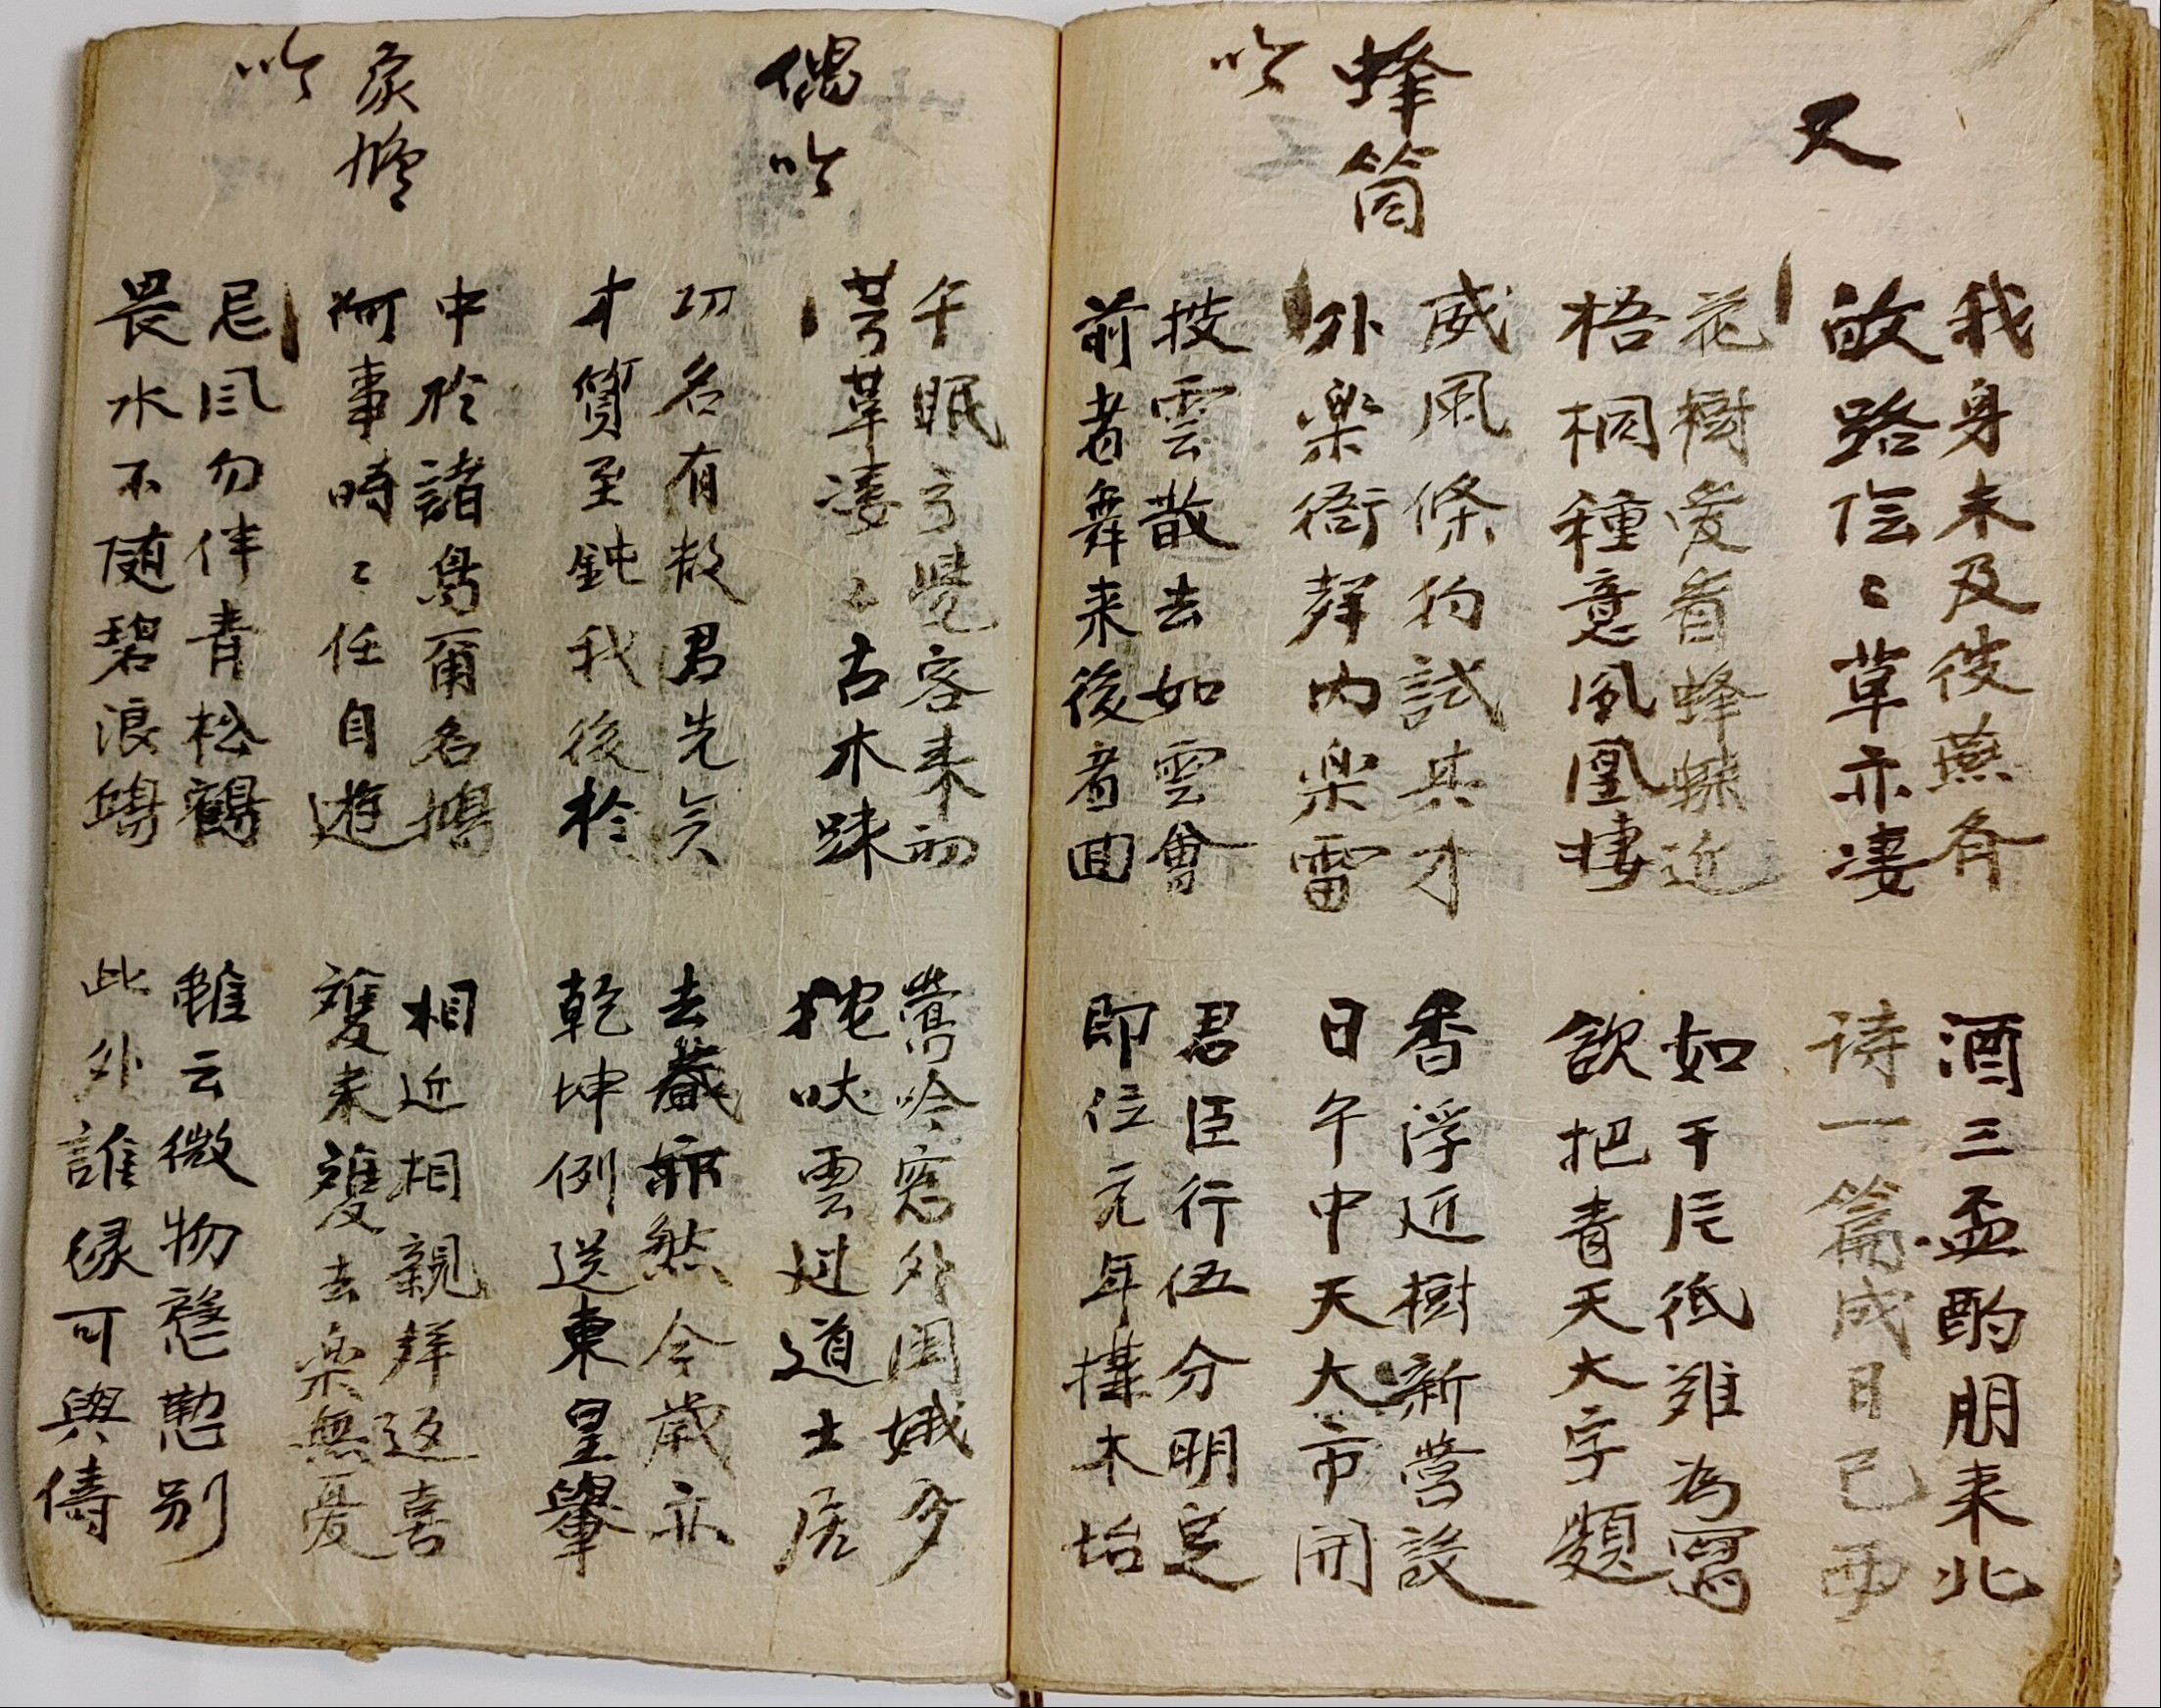 又
我身未及彼燕有
故路信〻草亦凄
酒三盃酌朋来北
詩一篇成日已西
花樹爰看蜂蝶近
梧桐種意凰凰棲
如干尺紙難為寫
欲把青天大字題
蜂筒
吟
威風條約試其才
外楽衙聲内楽雷
香浮近樹新營設
日午中天大市開
技雲散去如雲會
前者舞来後者回
君臣行伍分明定
即位元年構木
偶吟
午眠方覺客来初
萋〻古木踈
鶯吟窓外
吠雲过道士居
功名有数君先矣
才質至鈍我後於
去歲既然今歳亦
乾坤例送東皇轝
家
吟
中於諸鳥爾名
何事時〻任自遊
相近相親拜返喜
雙来雙去楽無憂
忌风勿伴青松鶴
畏水不随碧浪
雖云微物慇懃别
此外誰缘可與儔